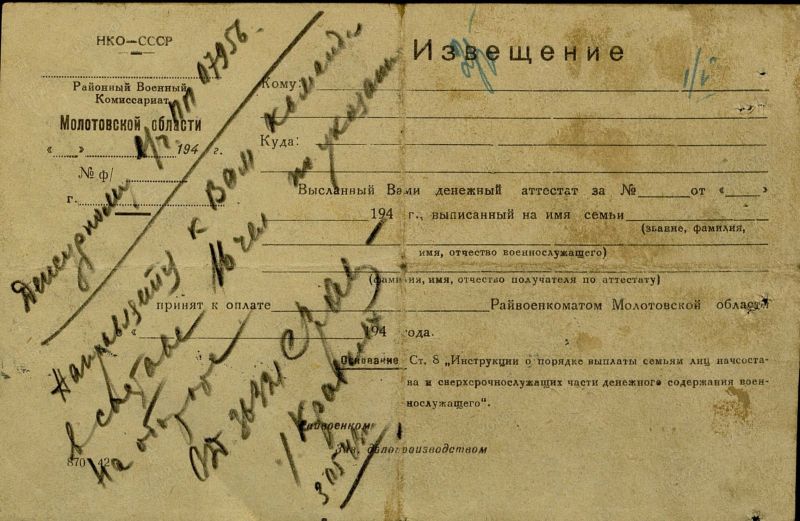 НКО—СССР
Районный Военный
Комиссариат
Молотовской области
« » 194 г.
№ ф/
г.
Извещение
Кому:
Куда:
Высланный Вами денежный аттестат за № от « »
194 г., выписанный на имя семьи
(звание, фамилия,
имя, отчество военнослужащего)
(фамилия, имя, отчество получателя по аттестату)
принят к оплате Райвоенкоматом Молотовской области
« 194 года.
Основание Ст. 8 „Инструкции о порядке выплаты семьям лиц начсоста-
ва и сверхсрочнослужащих части денежного содержания воен-
нослужащего".
Райвоенком
Зав. делопроизводством
870 42
Дежурному в/ч ПП 07956
Направляется к Вам команда
в составе 16 чел по указан
На обороте